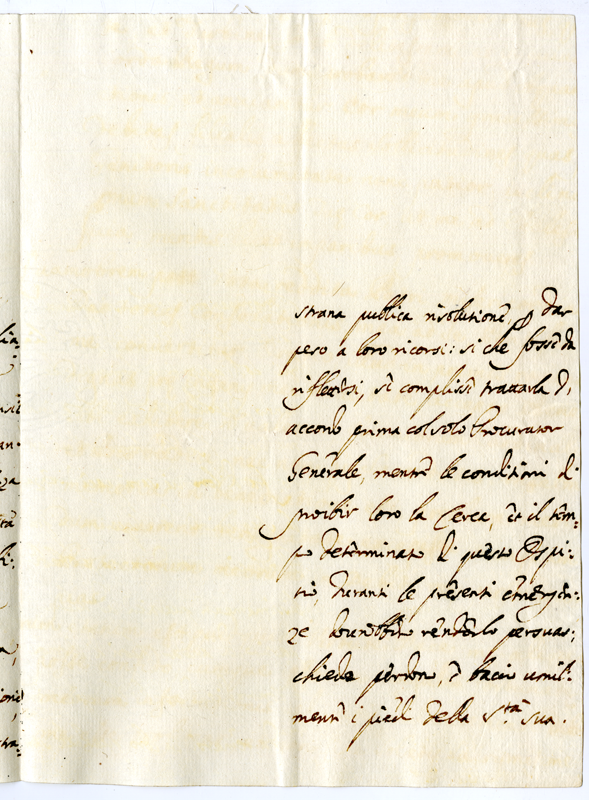 strana publica risolutione, p dar
peso a loro ricorsi: si che fosse da
riflettersi, se complisse trattarla d'
accordo prima col solo Procurator
Generale, mentre le conditioni di
proibir loro la Cerca, et il tem-
po determinato di questo Ospi-
tio, duranti le presenti emergen-
ze dourebbero renderlo persuas:
chiede perdono, e bacia umil-
mente i piedi della S.tà sua.